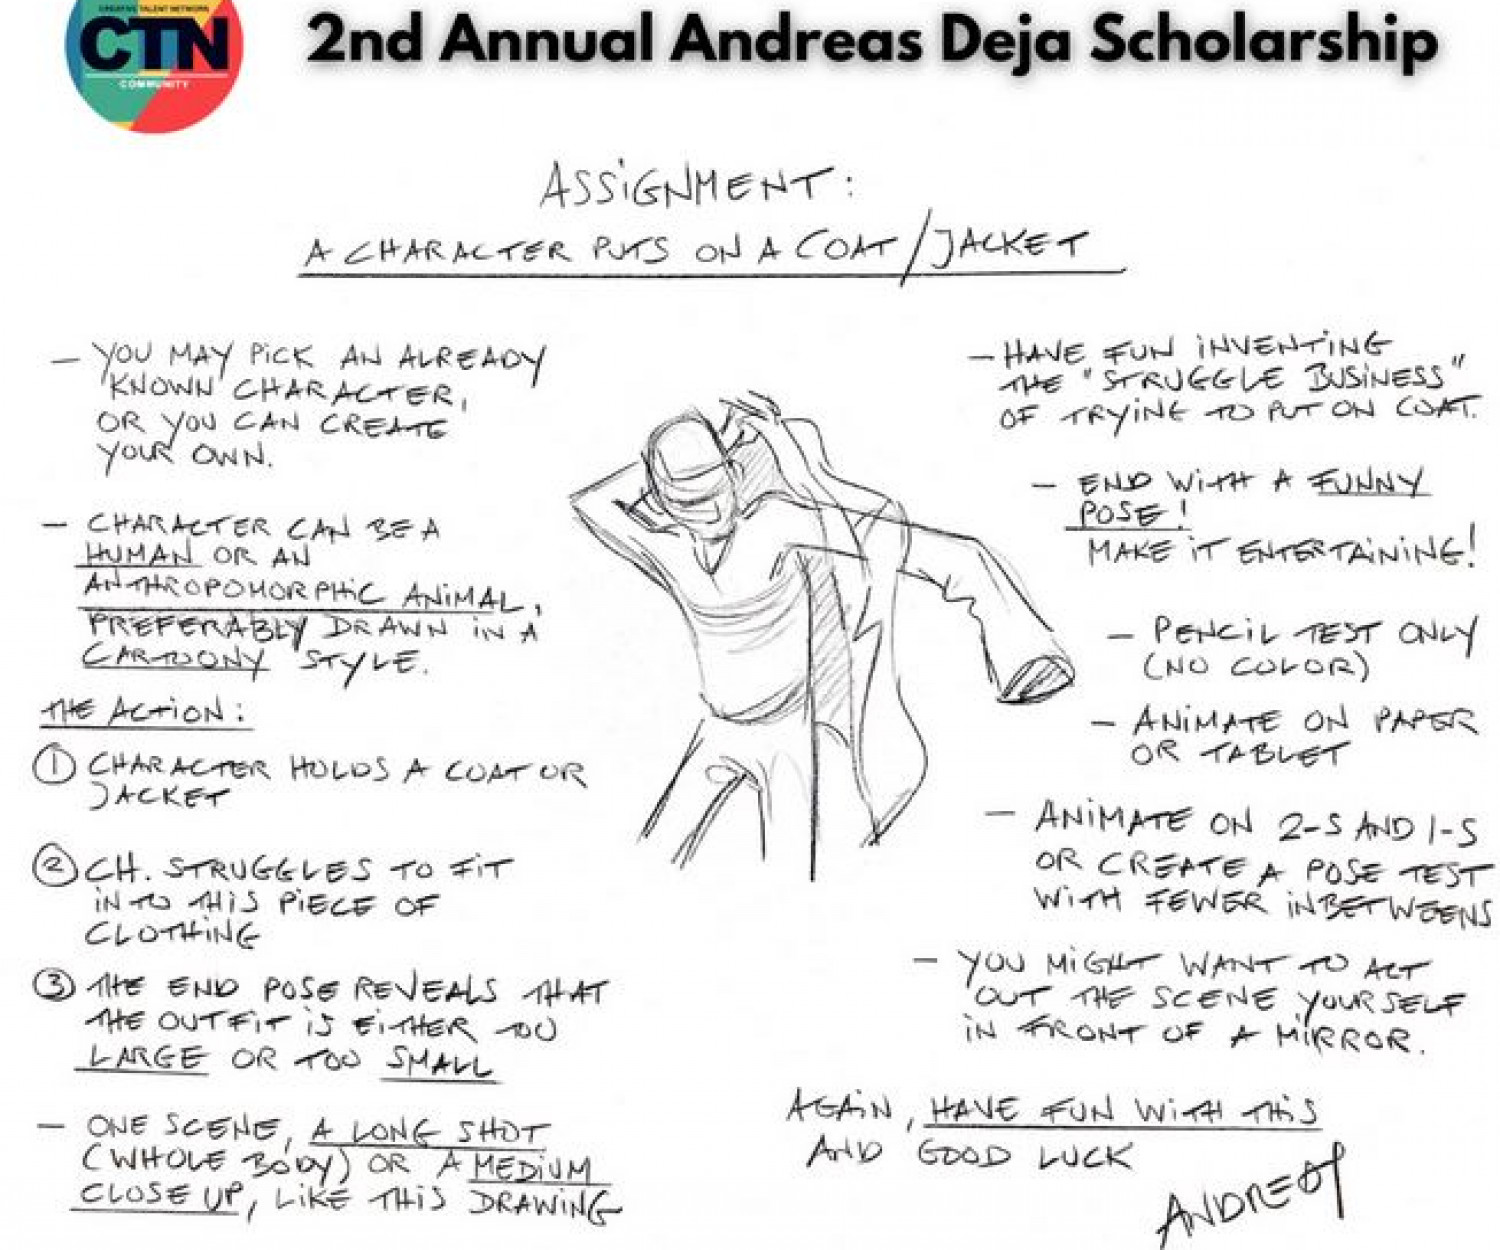 CREATIVE TALENT NETWORK
CTN
COMMUNITY
2nd Annual Andreas Deja Scholarship
ASSIGNMENT:
A CHARACTER PUTS ON A COAT/JACKET
– YOU MAY PICK AN ALREADY
KNOWN CHARACTER,
OR YOU CAN CREATE
YOUR OWN.
– CHARACTER CAN BE A
HUMAN OR AN
ANTHROPOMORPHIC ANIMAL,
PREFERABLY DRAWN IN A
CARTOONY STYLE.
THE ACTION:
① CHARACTER HOLDS A COAT OR
JACKET
② CH. STRUGGLES TO FIT
INTO THIS PIECE OF
CLOTHING
③ THE END POSE REVEALS THAT
THE OUTFIT IS EITHER TOO
LARGE OR TOO SMALL
– ONE SCENE, A LONG SHOT
(WHOLE BODY) OR A MEDIUM
CLOSE UP, LIKE THIS DRAWING
– HAVE FUN INVENTING
THE "STRUGGLE BUSINESS"
OF TRYING TO PUT ON COAT.
– END WITH A FUNNY
POSE!
MAKE IT ENTERTAINING!
– PENCIL TEST ONLY
(NO COLOR)
– ANIMATE ON PAPER
OR TABLET
– ANIMATE ON 2-S AND 1-S
OR CREATE A POSE TEST
WITH FEWER INBETWEENS
– YOU MIGHT WANT TO ACT
OUT THE SCENE YOURSELF
IN FRONT OF A MIRROR.
AGAIN, HAVE FUN WITH THIS
AND GOOD LUCK
ANDREAS